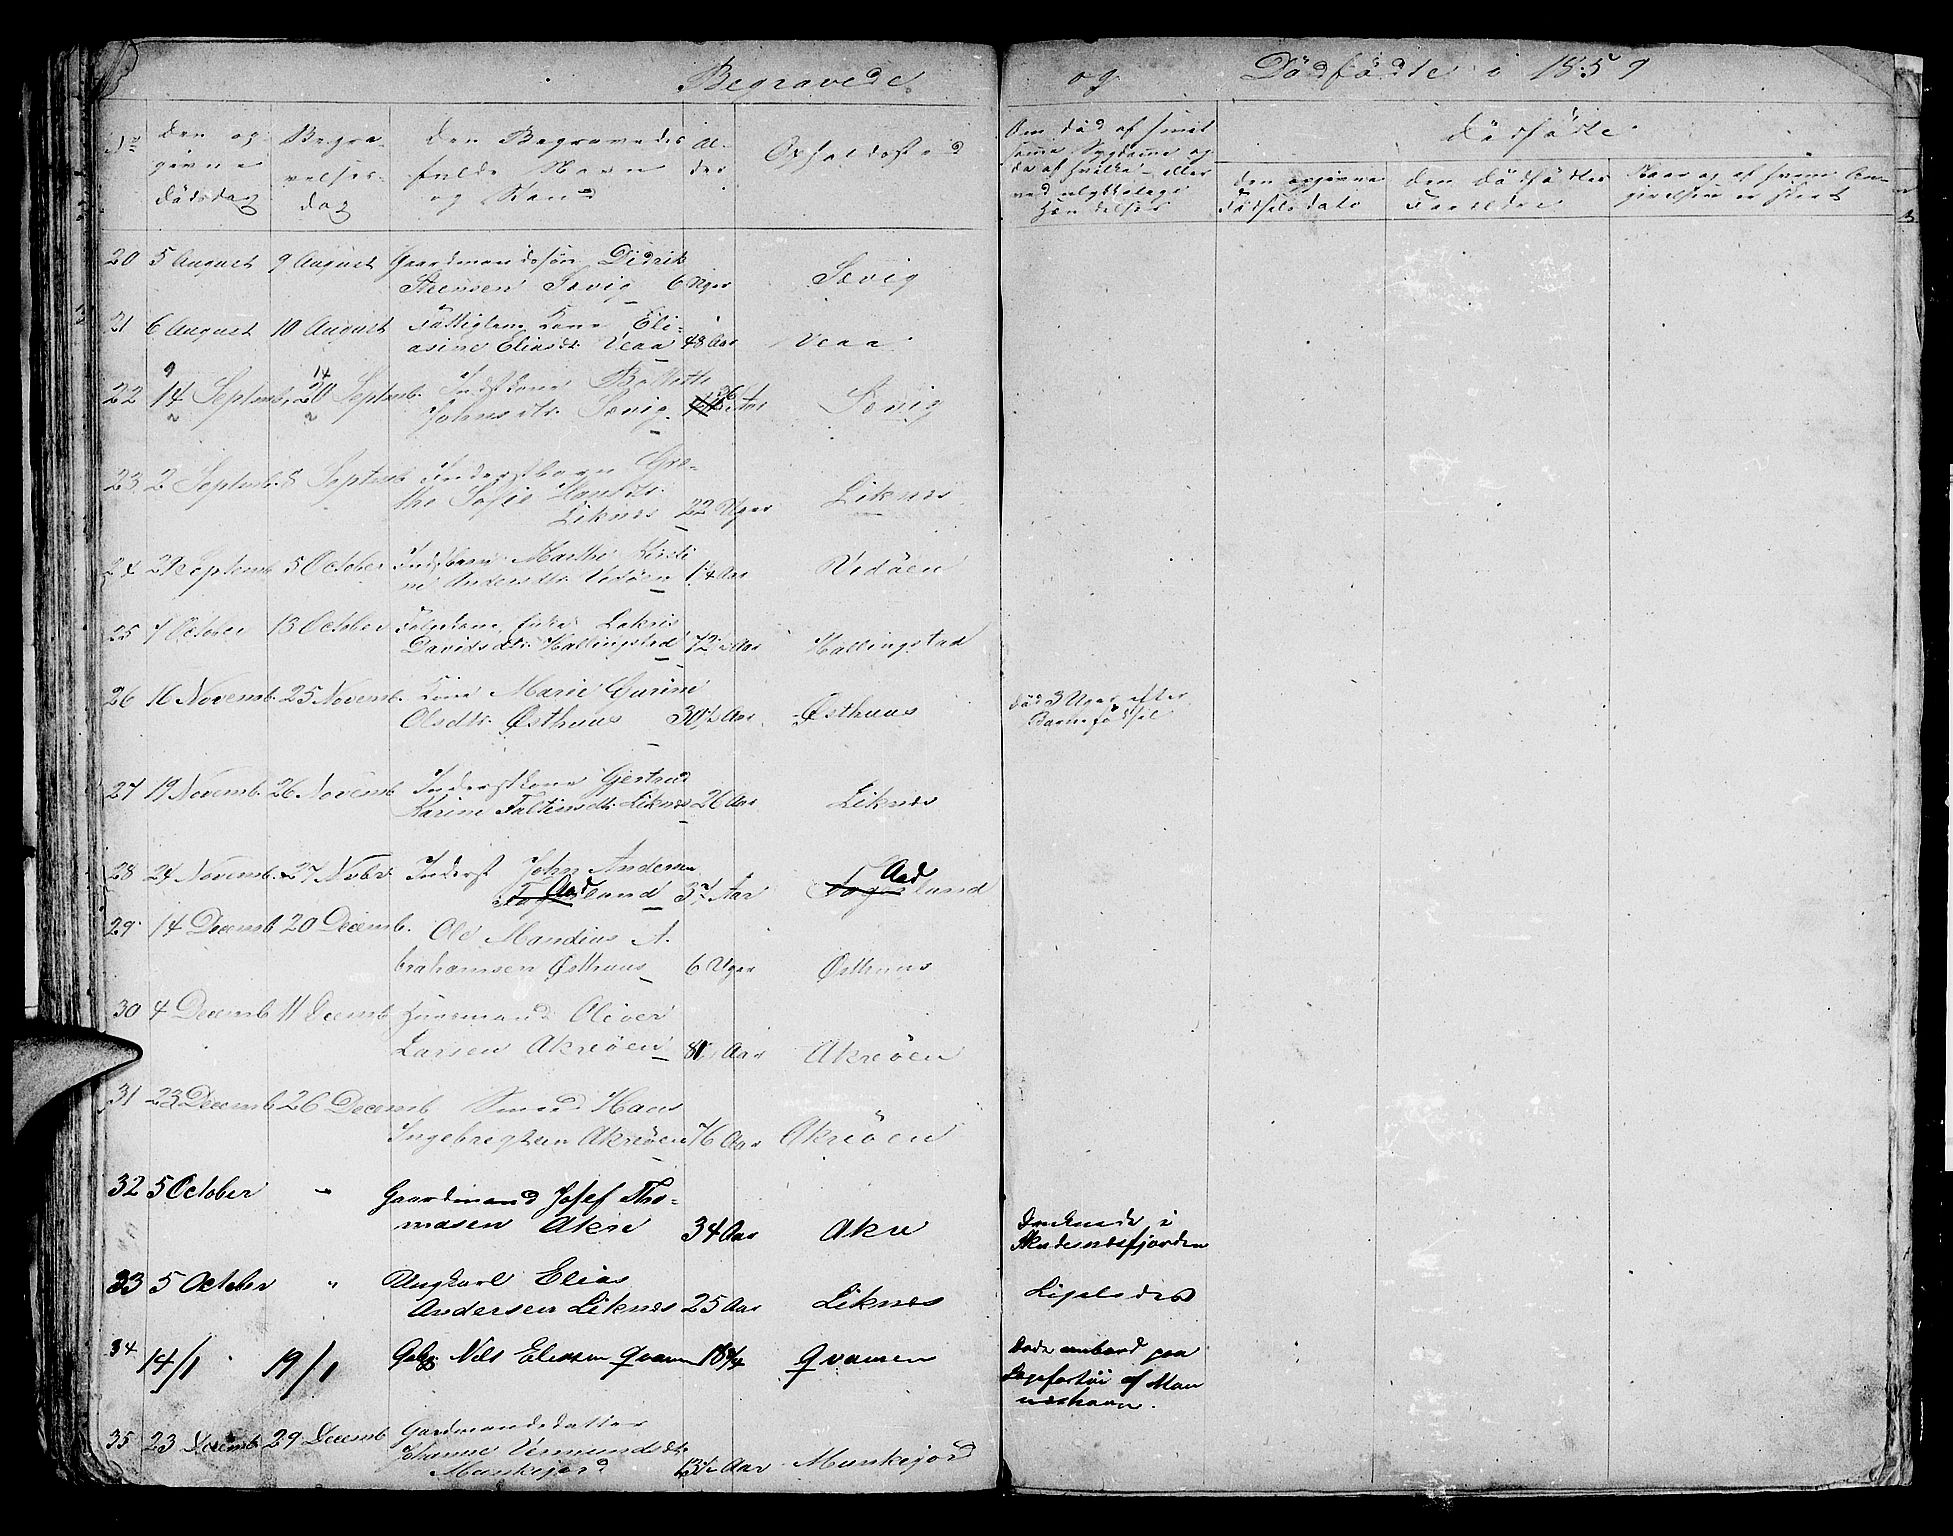 Begravede og Dödfödte i 1859
No
Den op-
givne
Dödsdag
Begra-
velses-
dag
Den Begravedes
fulde Navn
og Stand
Al-
der
Opholdssted
Om död af smit
som Sygdom og
da af hvilken eller
ved ulykkelige
Hændelser
Dödfödte
Den opgivne
Födselsdato
Den Dödfödtes
Forældre
20 5 August 9 August Gaardmandssön Didrik
Steensen Sævig 6 Uger Sævig
21 6 August 10 August Fattiglem Kone Eli-
asine Eliasdtr. Veaa 48 Aar Veaa
9 14
22 14 Septemb. 20 Septemb. Indstkone
Johnsdtr. Sævig Aar Sævig
23 2 Septemb. 8 Septemb Inderstbarn Gre-
the Sofie
Liknes 22 Uger Liknes
24 29 Septemb 5 October Indstbarn Marthe Kirsti
ne Andersdtr. Vedöen 1¼ Aar Vedöen
25 7 October 13 October Enke
Davidsdtr. Hallingstad 72 Aar Hallingstad
26 16 Novemb. 25 Novemb. Kone Marie Gurine
Olsdtr. Østhuus 30½ Aar Østhuus Död 3 Uger efter
Barnefödsel
27 19 Novemb. 26 Novemb Inderstkone Gjertrud
Karine Faltinsdtr. Liknes 26 Aar Liknes
28 24 Novemb. 27 Novbr. Inderst John Andersen
Aadland 37 Aar Aadland
29 14 Decemb 20 Decemb. Ole Mandius A-
brahamsen Østhuus 6 Uger Østhuus
30 4 Decemb 11 Decemb Huusmand Oliver
Larsen Akreöen 81 Aar Akreöen
31 23 Decemb 26 Decemb Hans
Ingebrigtsen Akreöen 76 Aar Akreöen
32 5 October " Gaardmand Josef Tho-
masen Akre 34 Aar Akre Druknede i
Skudesnesfjorden
33 5 October " Ungkarl Elias
Andersen Liknes 25 Aar Liknes Ligeledes
34 14/1 19/1 Nils Eliassen Qvamen 18¾ Qvamen Döde ombord paa
af
35 23 Decemb 29 Decemb Gardmandsdatter
Johanne Vermundsdtr
Munkejord 13½ Aar Munkejord